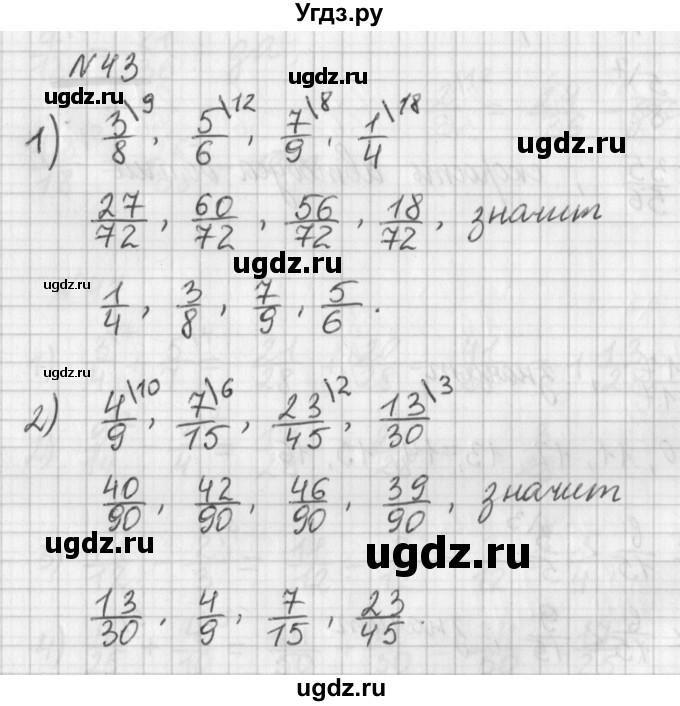 Угдз.ру
N 43
ugdz.ru ugdz.ru
1) 3/8 \9, 5/6 \12, 7/9 \8, 1/4 \18
ugdz.ru
27/72, 60/72, 56/72, 18/72, значит
ugdz.ru
ugdz.ru
1/4, 3/8, 7/9, 5/6.
ugdz.ru
2) 4/9 \10, 7/15 \6, 23/45 \2, 13/30 \3
40/90, 42/90, 46/90, 39/90, значит
ugdz.ru ugdz.ru
13/30, 4/9, 7/15, 23/45.
ugdz.ru